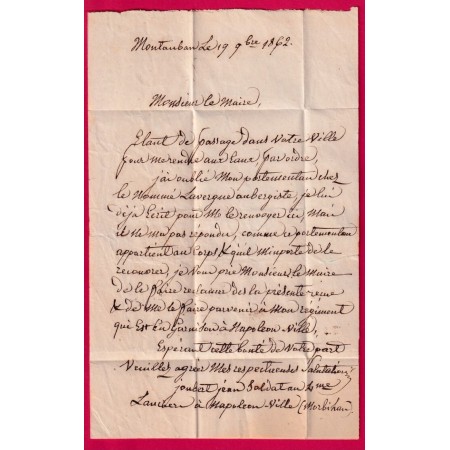 Montauban Le 19 9bre 1862.
Monsieur le Maire,
Etant de passage dans Votre Ville
pour me rendre aux Eaux par ordre,
j'ai oublié Mon portemanteau chez
le Nommé Lavergne aubergiste, je lui
déja Ecrit pour Me le renvoyer ici, Mais
il ne m'a pas répondre, comme ce portemanteau
appartient au Corps & qu'il M'importe de le
recouvrer, je Vous prie Monsieur le Maire
de le faire la présente
& de Me le faire parvenir à Mon régiment
qui Est En Garnison à Napoleon Ville,
Espérant cette bonté de Votre part
Veuillez agréer Mes respectueuses Salutations
jean Soldat au 4me
Lancier à Napoleon Ville (Morbihan)